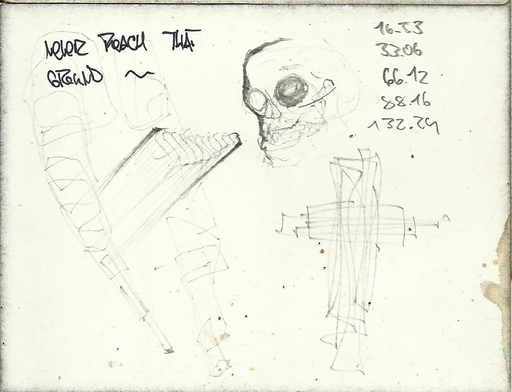 NEVER REACH THAT
GROUND ~
16.53
33.06
66.12
88.16
132.24